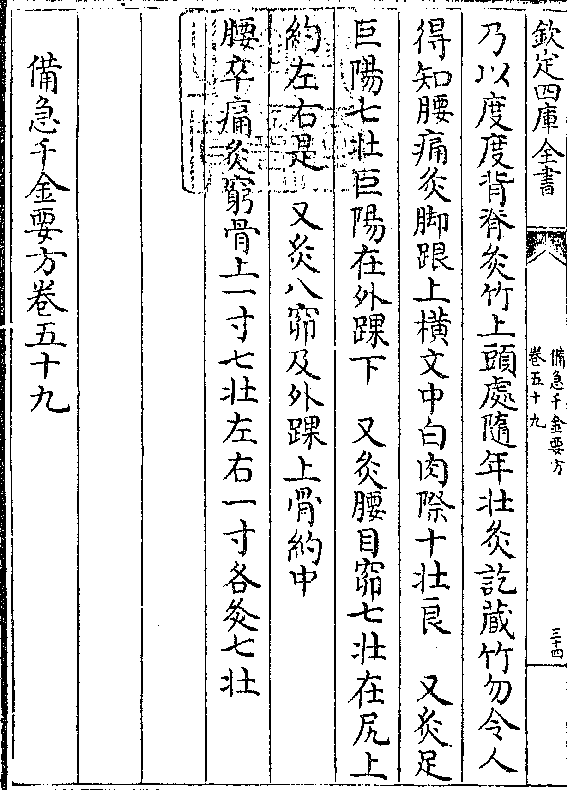 欽定四庫全書
備急千金要方
卷五十九
三十四
乃以度度背脊灸竹上頭處隨年壯灸訖藏竹勿令人
得知腰痛灸脚跟上横文中白肉際十壯良 又灸足
巨陽七壯巨陽在外踝下 又灸腰目窌七壯在尻上
約左右是 又灸八窌及外踝上骨約中
腰卒痛灸窮骨上一寸七壯左右一寸各灸七壯
備急千金要方卷五十九